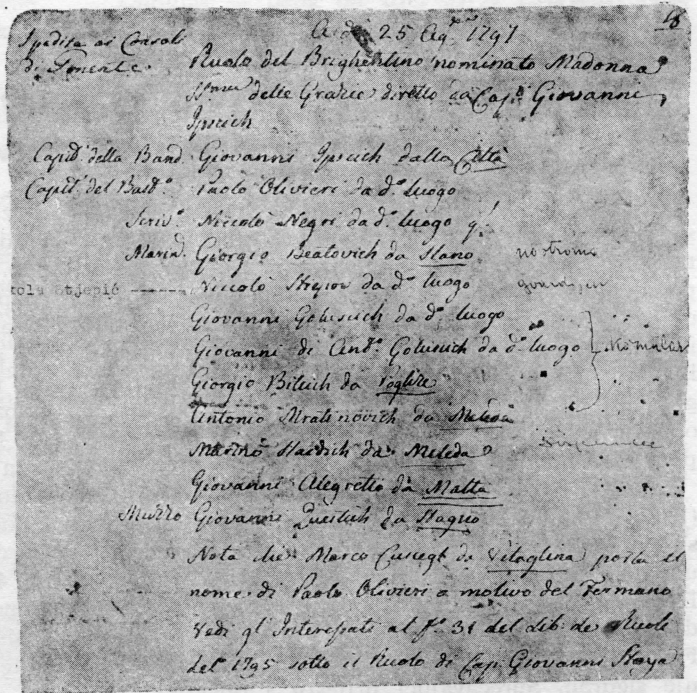 18
A dì 25 Ag.º 1797
Spedita ai Consoli
di Ponente.
Ruolo del Brighentino nominato Madonna
SSma delle Grazie diretto da Cap.º Giovanni
Ipsich
Capit. della Band. Giovanni Ipsich dalla Città
Capit. del Bast.º Paolo Olivieri da d.º luogo
Scriv.º Niccolò Negri da d.º luogo
Marin. Giorgio Beatovich da Slano nostromo
kola Stjepić ------ Niccolò da d.º luogo
Giovanni Golusich da d.º luogo
Giovanni di Ant.º Golusich da d.º luogo
Giorgio Bilich da Poglize
Antonio Mratinovich da Meleda
Marino Haidich da Meleda
Giovanni Alegretto da Malta
Muzzo Giovanni da Stagno
Nota che Marco da Vitaglina porta il
nome di Paolo Olivieri a motivo del Fermano
Vedi gl' Interessati al f.º 31 del Lib. de Ruoli
del 1795 sotto il Ruolo di Cap. Giovanni